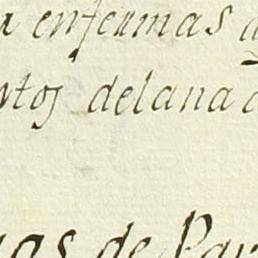 a enfermas d
ntos delana d
as de Par